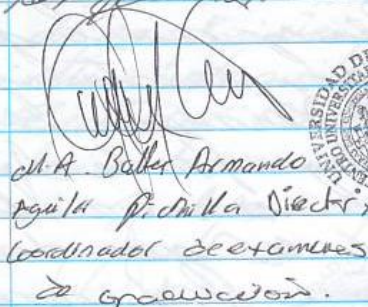 M.A. Balter Armando
Aguila Pichilla Director,
Coordinador de examenes
de graduación.
UNIVERSIDAD DE
CENTRO UNIVERSITAR